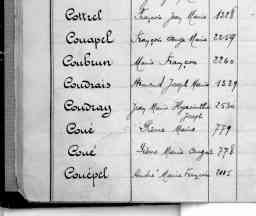 Cottrel François Jean Marie 1328
Couapel François Ange Marie 2259
Coubrun Marie François 2260
Coudrais Armand Joseph Marie 1329
Coudray Jean Marie Hyacinthe Joseph 2530
Coué Pierre Marie 779
Coué Pierre Marie Ange 778
Couëpel André Marie François 2005